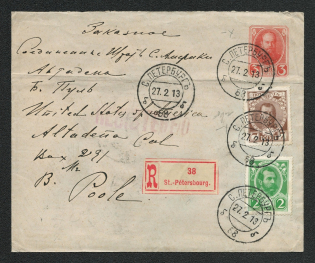 Заказное
Соединенные Штаты С. Америки
Алтадена
Б. Пуль
United States of America
Altadena Cal
Box 291
B. Mr
Poole
С. ПЕТЕРБУРГЪ
27.2.13
С. ПЕТЕРБУРГЪ
27.2.13
С. ПЕТЕРБУРГЪ
27.2.13
С. ПЕТЕРБУРГЪ
27.2.13
3
2
R
38
St.-Pétersbourg.